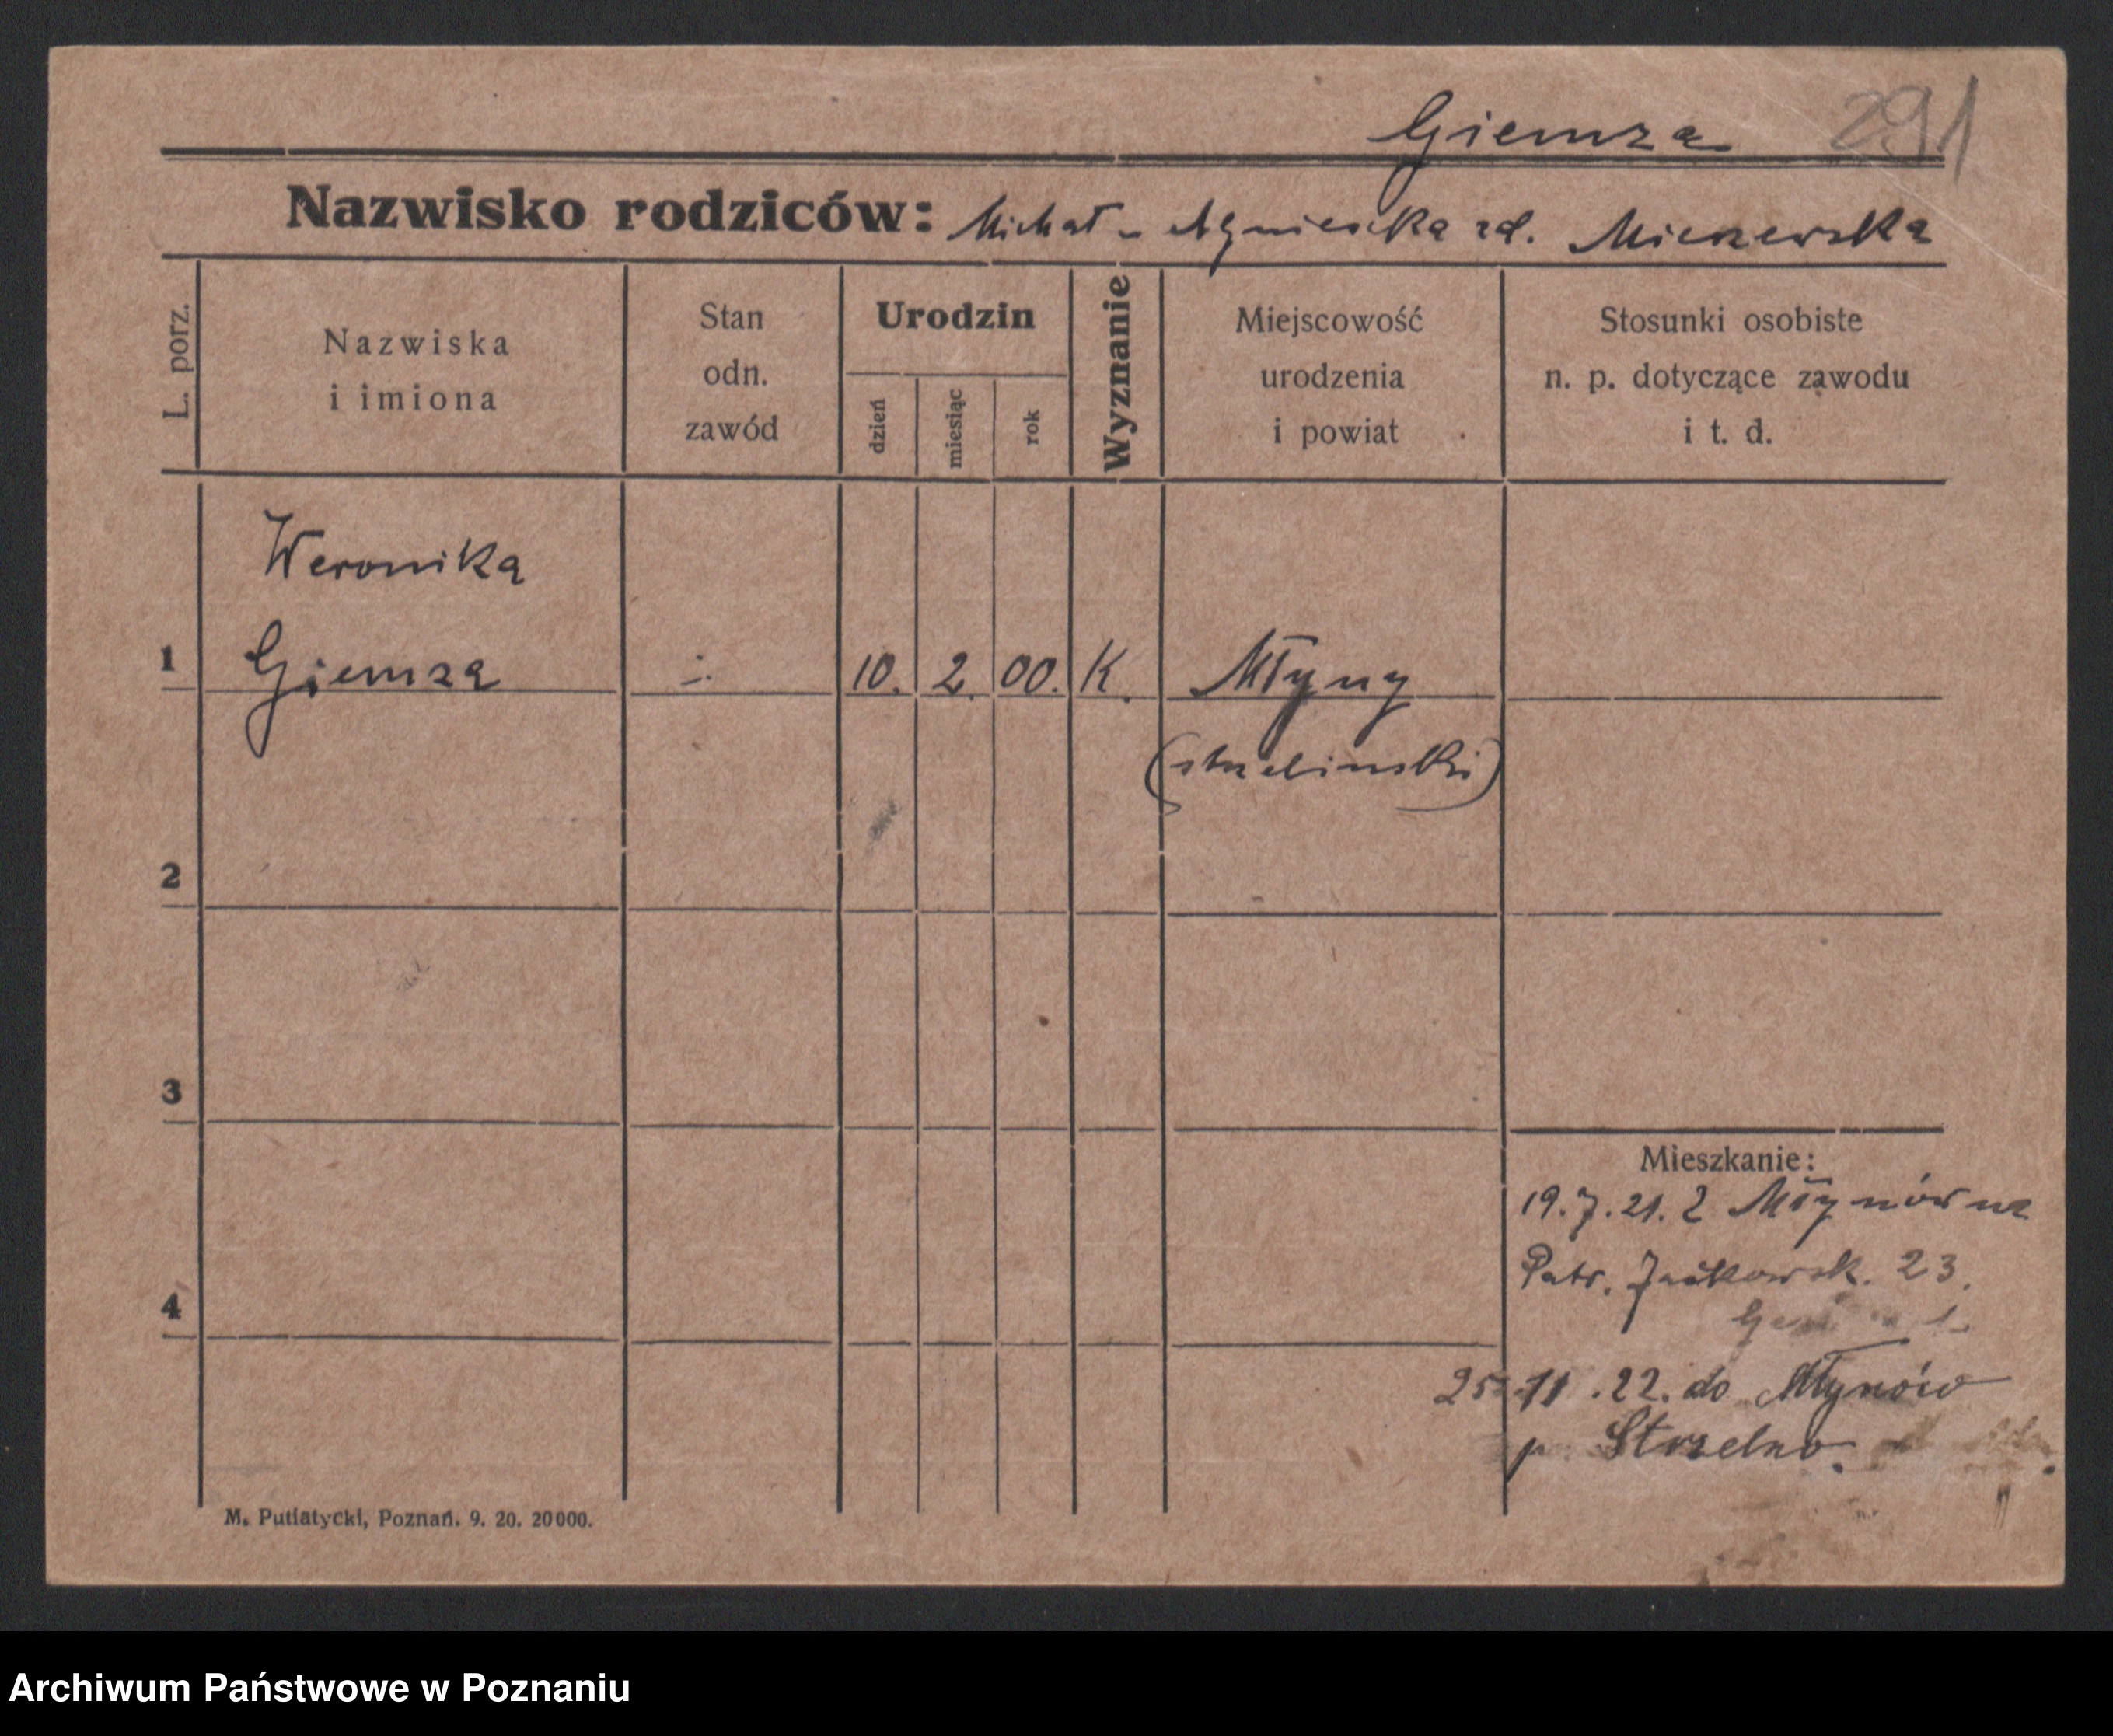 Giemza 291
Nazwisko rodziców: Michał - Agnieszka zd.
L. porz.
Nazwiska
i imiona
Stan
odn.
zawód
Urodzin
dzień
miesiąc
rok
Wyznanie
Miejscowość
urodzenia
i powiat
Stosunki osobiste
n. p. dotyczące zawodu
i t. d.
Weronika
1 Giemza -:- 10. 2. 00. K. Młyny
(strzelinski)
2
3
Mieszkanie:
19.7.21. z
Patr. Jackowsk. 23.
4
25.11.22. do Młynów
p. Strzelno.
M. Putiatycki, Poznań. 9. 20. 20000.
Archiwum Państwowe w Poznaniu